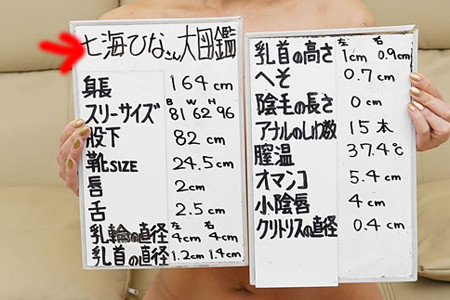 七海ひなさん大図鑑
身長 164cm
B W H
スリーサイズ 81 62 96
股下 82cm
靴SIZE 24.5cm
唇 2cm
舌 2.5cm
左 右
乳輪の直径 4cm 4cm
乳首の直径 1.2cm 1.4cm
左 右
乳首の高さ 1cm 0.9cm
へそ 0.7cm
陰毛の長さ 0cm
アナルのしわ数 15本
膣温 37.4℃
オマンコ 5.4cm
小陰唇 4cm
クリトリスの直径 0.4cm